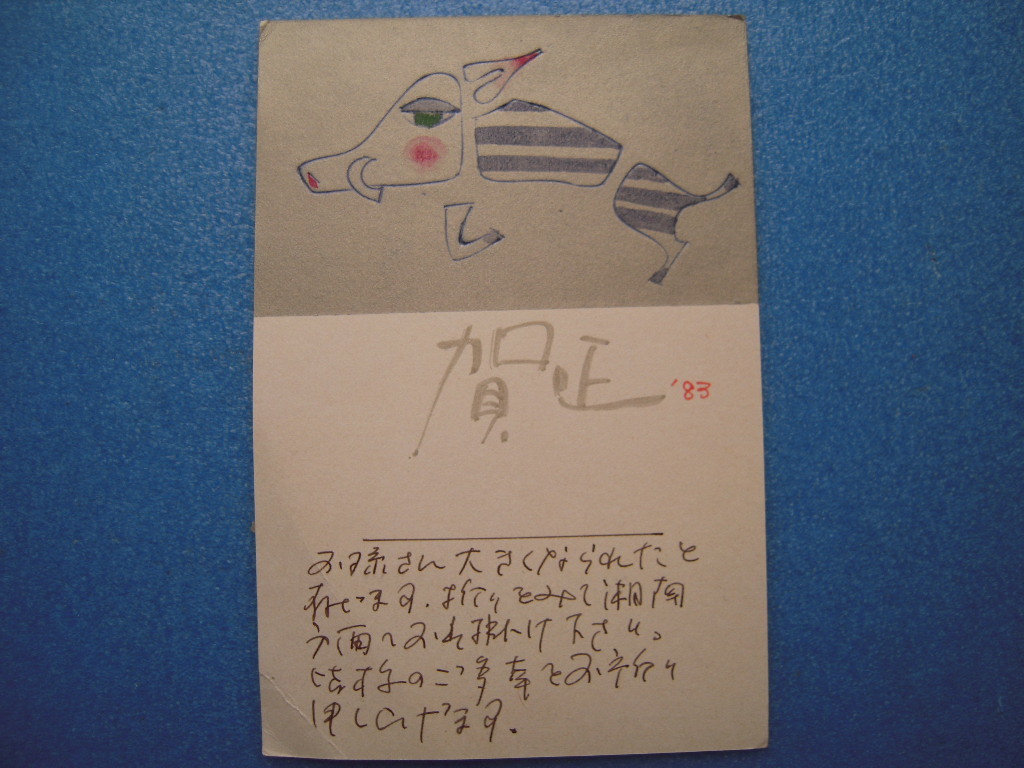 賀正 '83
お子様さん大きくなられたこと
存じます。折りをみて湘南
方面へお出掛け下さい。
皆様のご多幸をお祈り
申し上げます。